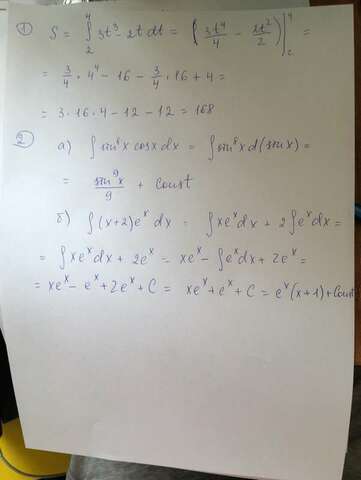 ① S = ∫₂⁴ 3t³ - 2t dt = (3t⁴/4 - 2t²/2)|₂⁴ =
= 3/4 · 4⁴ - 16 - 3/4 · 16 + 4 =
= 3 · 16 · 4 - 12 - 12 = 168
② а) ∫ sin⁸x cosx dx = ∫ sin⁸x d(sinx) =
= sin⁹x/9 + const
б) ∫ (x+2)eˣ dx = ∫ xeˣdx + 2∫eˣdx =
= ∫ xeˣdx + 2eˣ = xeˣ - ∫eˣdx + 2eˣ =
= xeˣ - eˣ + 2eˣ + C = xeˣ + eˣ + C = eˣ(x+1) + const